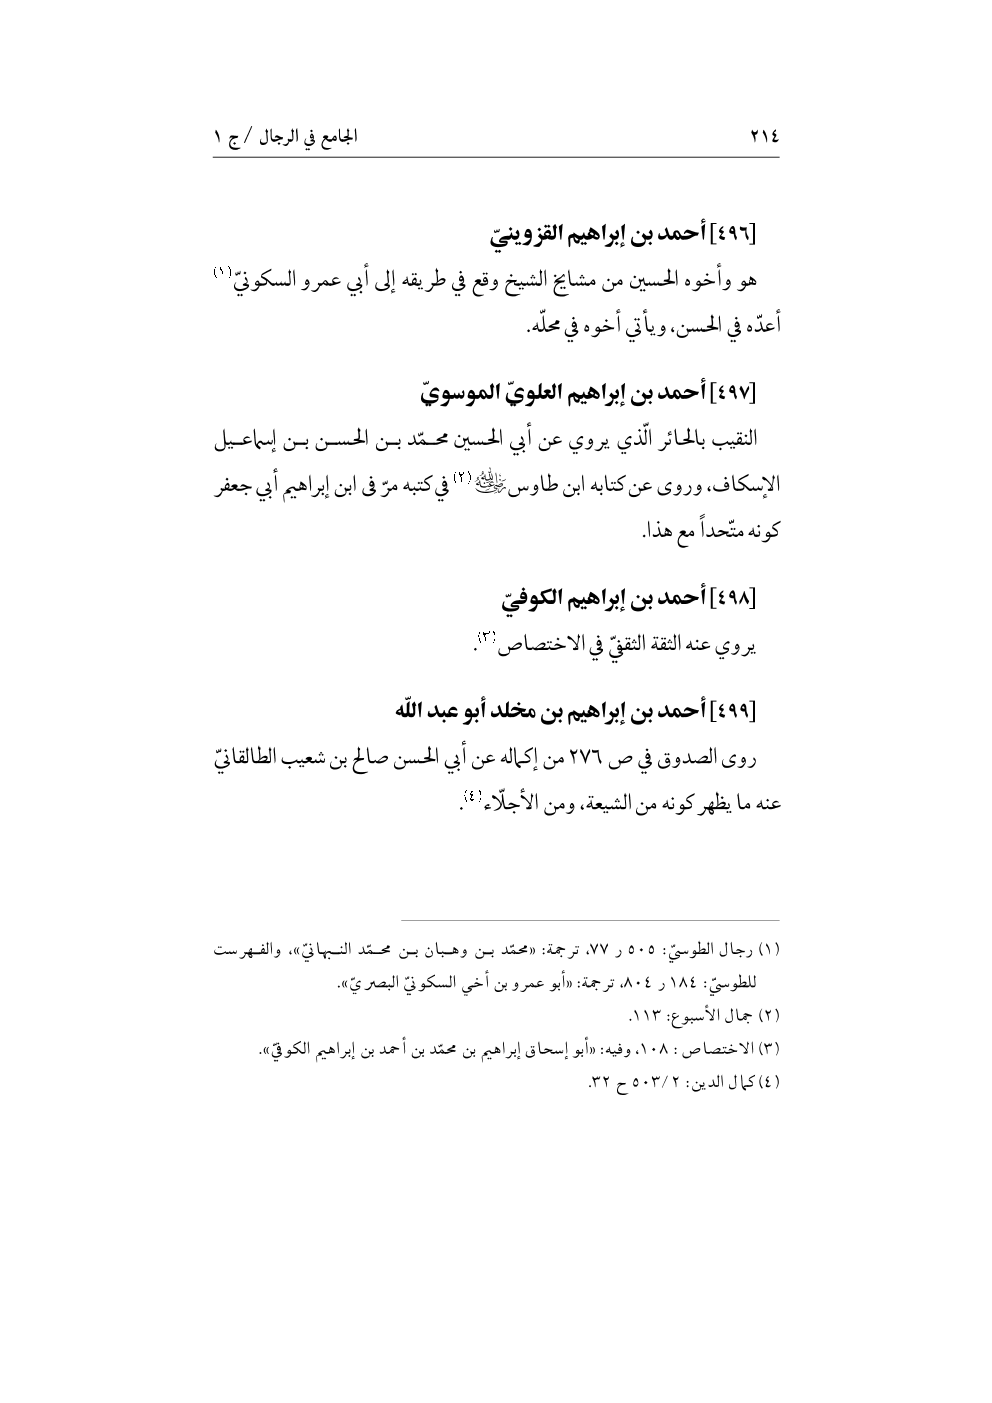 ٢١٤ الجامع في الرجال / ج ١
[٤٩٦] أحمد بن إبراهيم القزوينيّ
هو وأخوه الحسين من مشايخ الشيخ وقع في طريقه إلى أبي عمرو السكونيّ(١)
أعدّه في الحسن، ويأتي أخوه في محلّه.
[٤٩٧] أحمد بن إبراهيم العلويّ الموسويّ
النقيب بالحائر الّذي يروي عن أبي الحسين محمّد بن الحسن بن إسماعيل
الإسكاف، وروى عن كتابه ابن طاوس ﵁(٢) في كتبه مرّ فى ابن إبراهيم أبي جعفر
كونه متّحداً مع هذا.
[٤٩٨] أحمد بن إبراهيم الكوفيّ
يروي عنه الثقة الثقفيّ في الاختصاص(٣).
[٤٩٩] أحمد بن إبراهيم بن مخلد أبو عبد اللّه
روى الصدوق في ص ٢٧٦ من إكماله عن أبي الحسن صالح بن شعيب الطالقانيّ
عنه ما يظهر كونه من الشيعة، ومن الأجلّاء(٤).
(١) رجال الطوسيّ: ٥٠٥ ر ٧٧، ترجمة: «محمّد بن وهبان بن محمّد النبهانيّ»، والفهرست
للطوسيّ: ١٨٤ ر ٨٠٤، ترجمة: «أبو عمرو بن أخي السكونيّ البصريّ».
(٢) جمال الأسبوع: ١١٣.
(٣) الاختصاص : ١٠٨، وفيه: «أبو إسحاق إبراهيم بن محمّد بن أحمد بن إبراهيم الكوفيّ».
(٤) كمال الدين: ٢/ ٥٠٣ ح ٣٢.